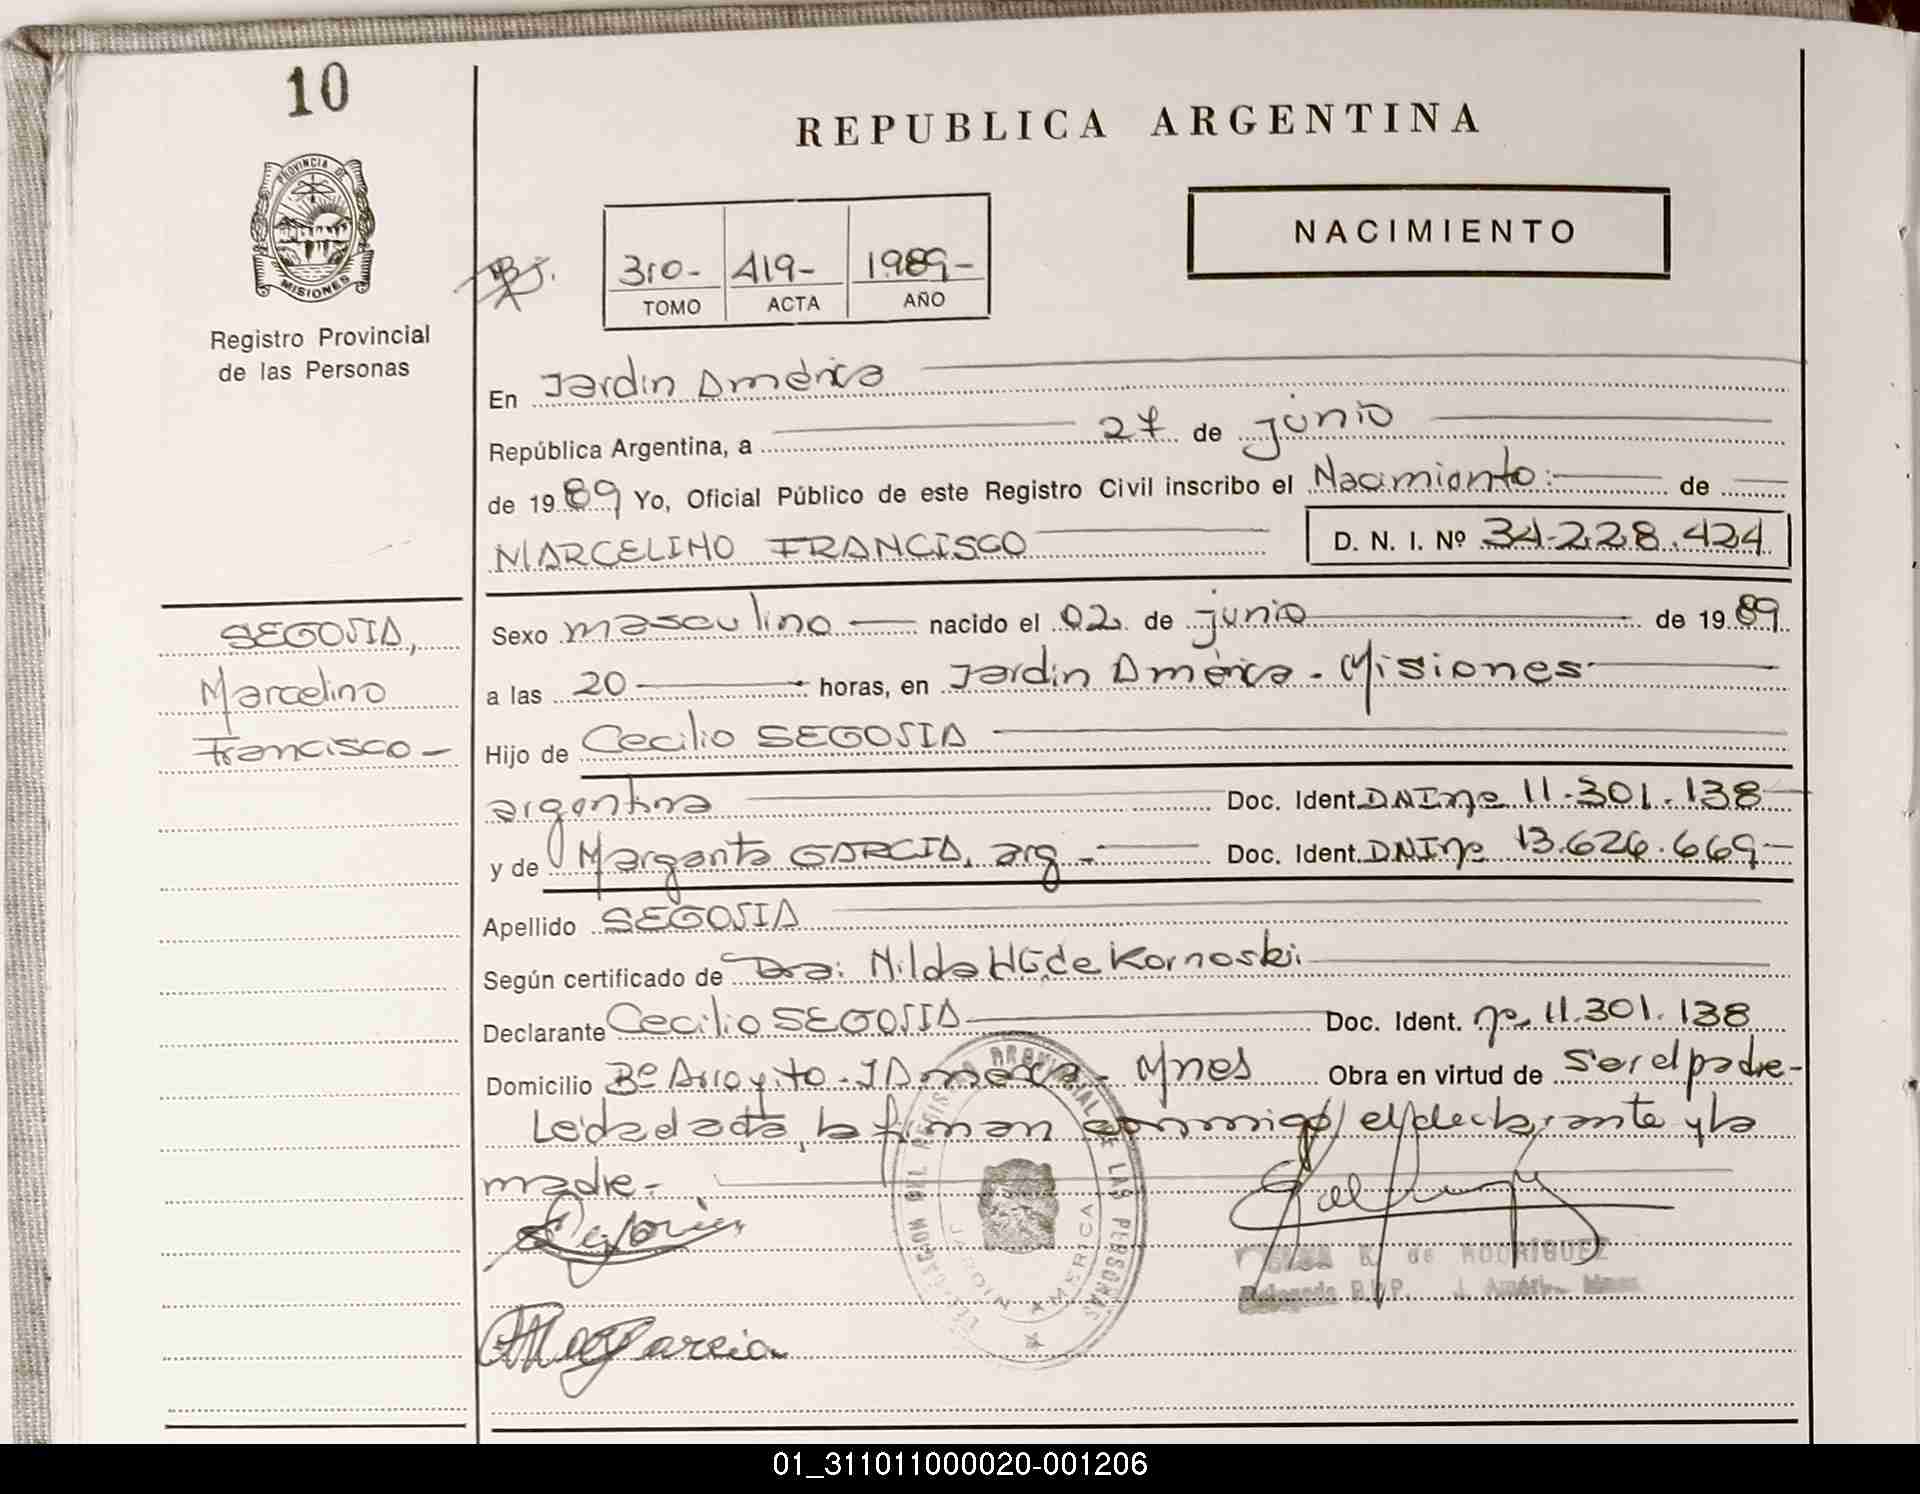 10
REPUBLICA ARGENTINA
PROVINCIA DE
MISIONES
NACIMIENTO
3ro- 419- 1989-
TOMO ACTA AÑO
Registro Provincial
de las Personas
En Jardin América
República Argentina, a 27 de junio
de 1989 Yo, Oficial Público de este Registro Civil inscribo el Nacimiento: de
MARCELINO FRANCISCO D. N. I. Nº 34.228.424
SEGOVIA,
Marcelino
Francisco -
Sexo masculino nacido el 02 de junio de 1989
a las 20 horas, en Jardin América - Misiones
Hijo de Cecilio SEGOVIA
argentina Doc. Ident. DNI nº 11.301.138
y de Margarita GARCIA, arg - Doc. Ident. DNI nº 13.626.669
Apellido SEGOVIA
Según certificado de Dra: Nilda HG de Kornoski
Declarante Cecilio SEGOVIA Doc. Ident. nº 11.301.138
Domicilio Bº Arroyito - J América - Mnes Obra en virtud de Ser el padre -
Leida el acta, la firman conmigo, el declarante y la
madre -
DELEGACION DEL REGISTRO PROVINCIAL DE LAS PERSONAS
JARDIN AMERICA
K. de RODRIGUEZ
Delegada R.P.P. J. América
Garcia
01_311011000020-001206